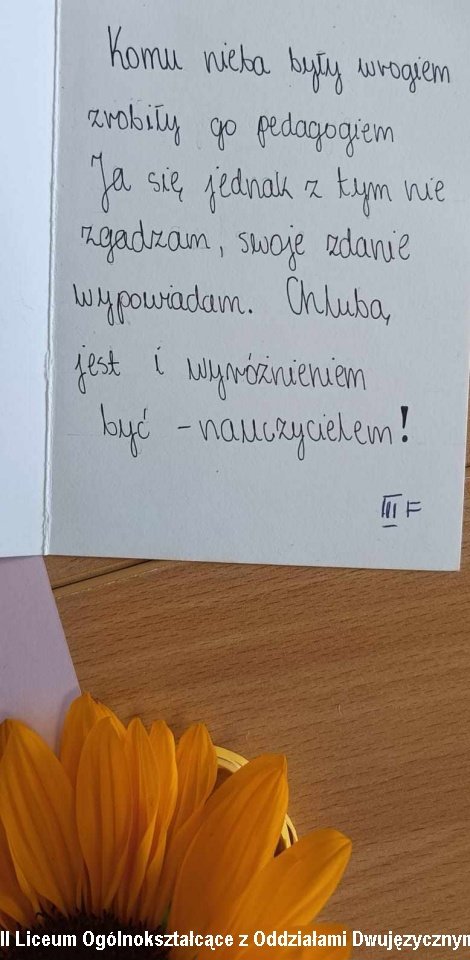 Komu nieba były wrogiem
zrobiły go pedagogiem
Ja się jednak z tym nie
zgadzam, swoje zdanie
wypowiadam. Chlubą
jest i wyróżnieniem
być - nauczycielem!
III F
II Liceum Ogólnokształcące z Oddziałami Dwujęzycznym